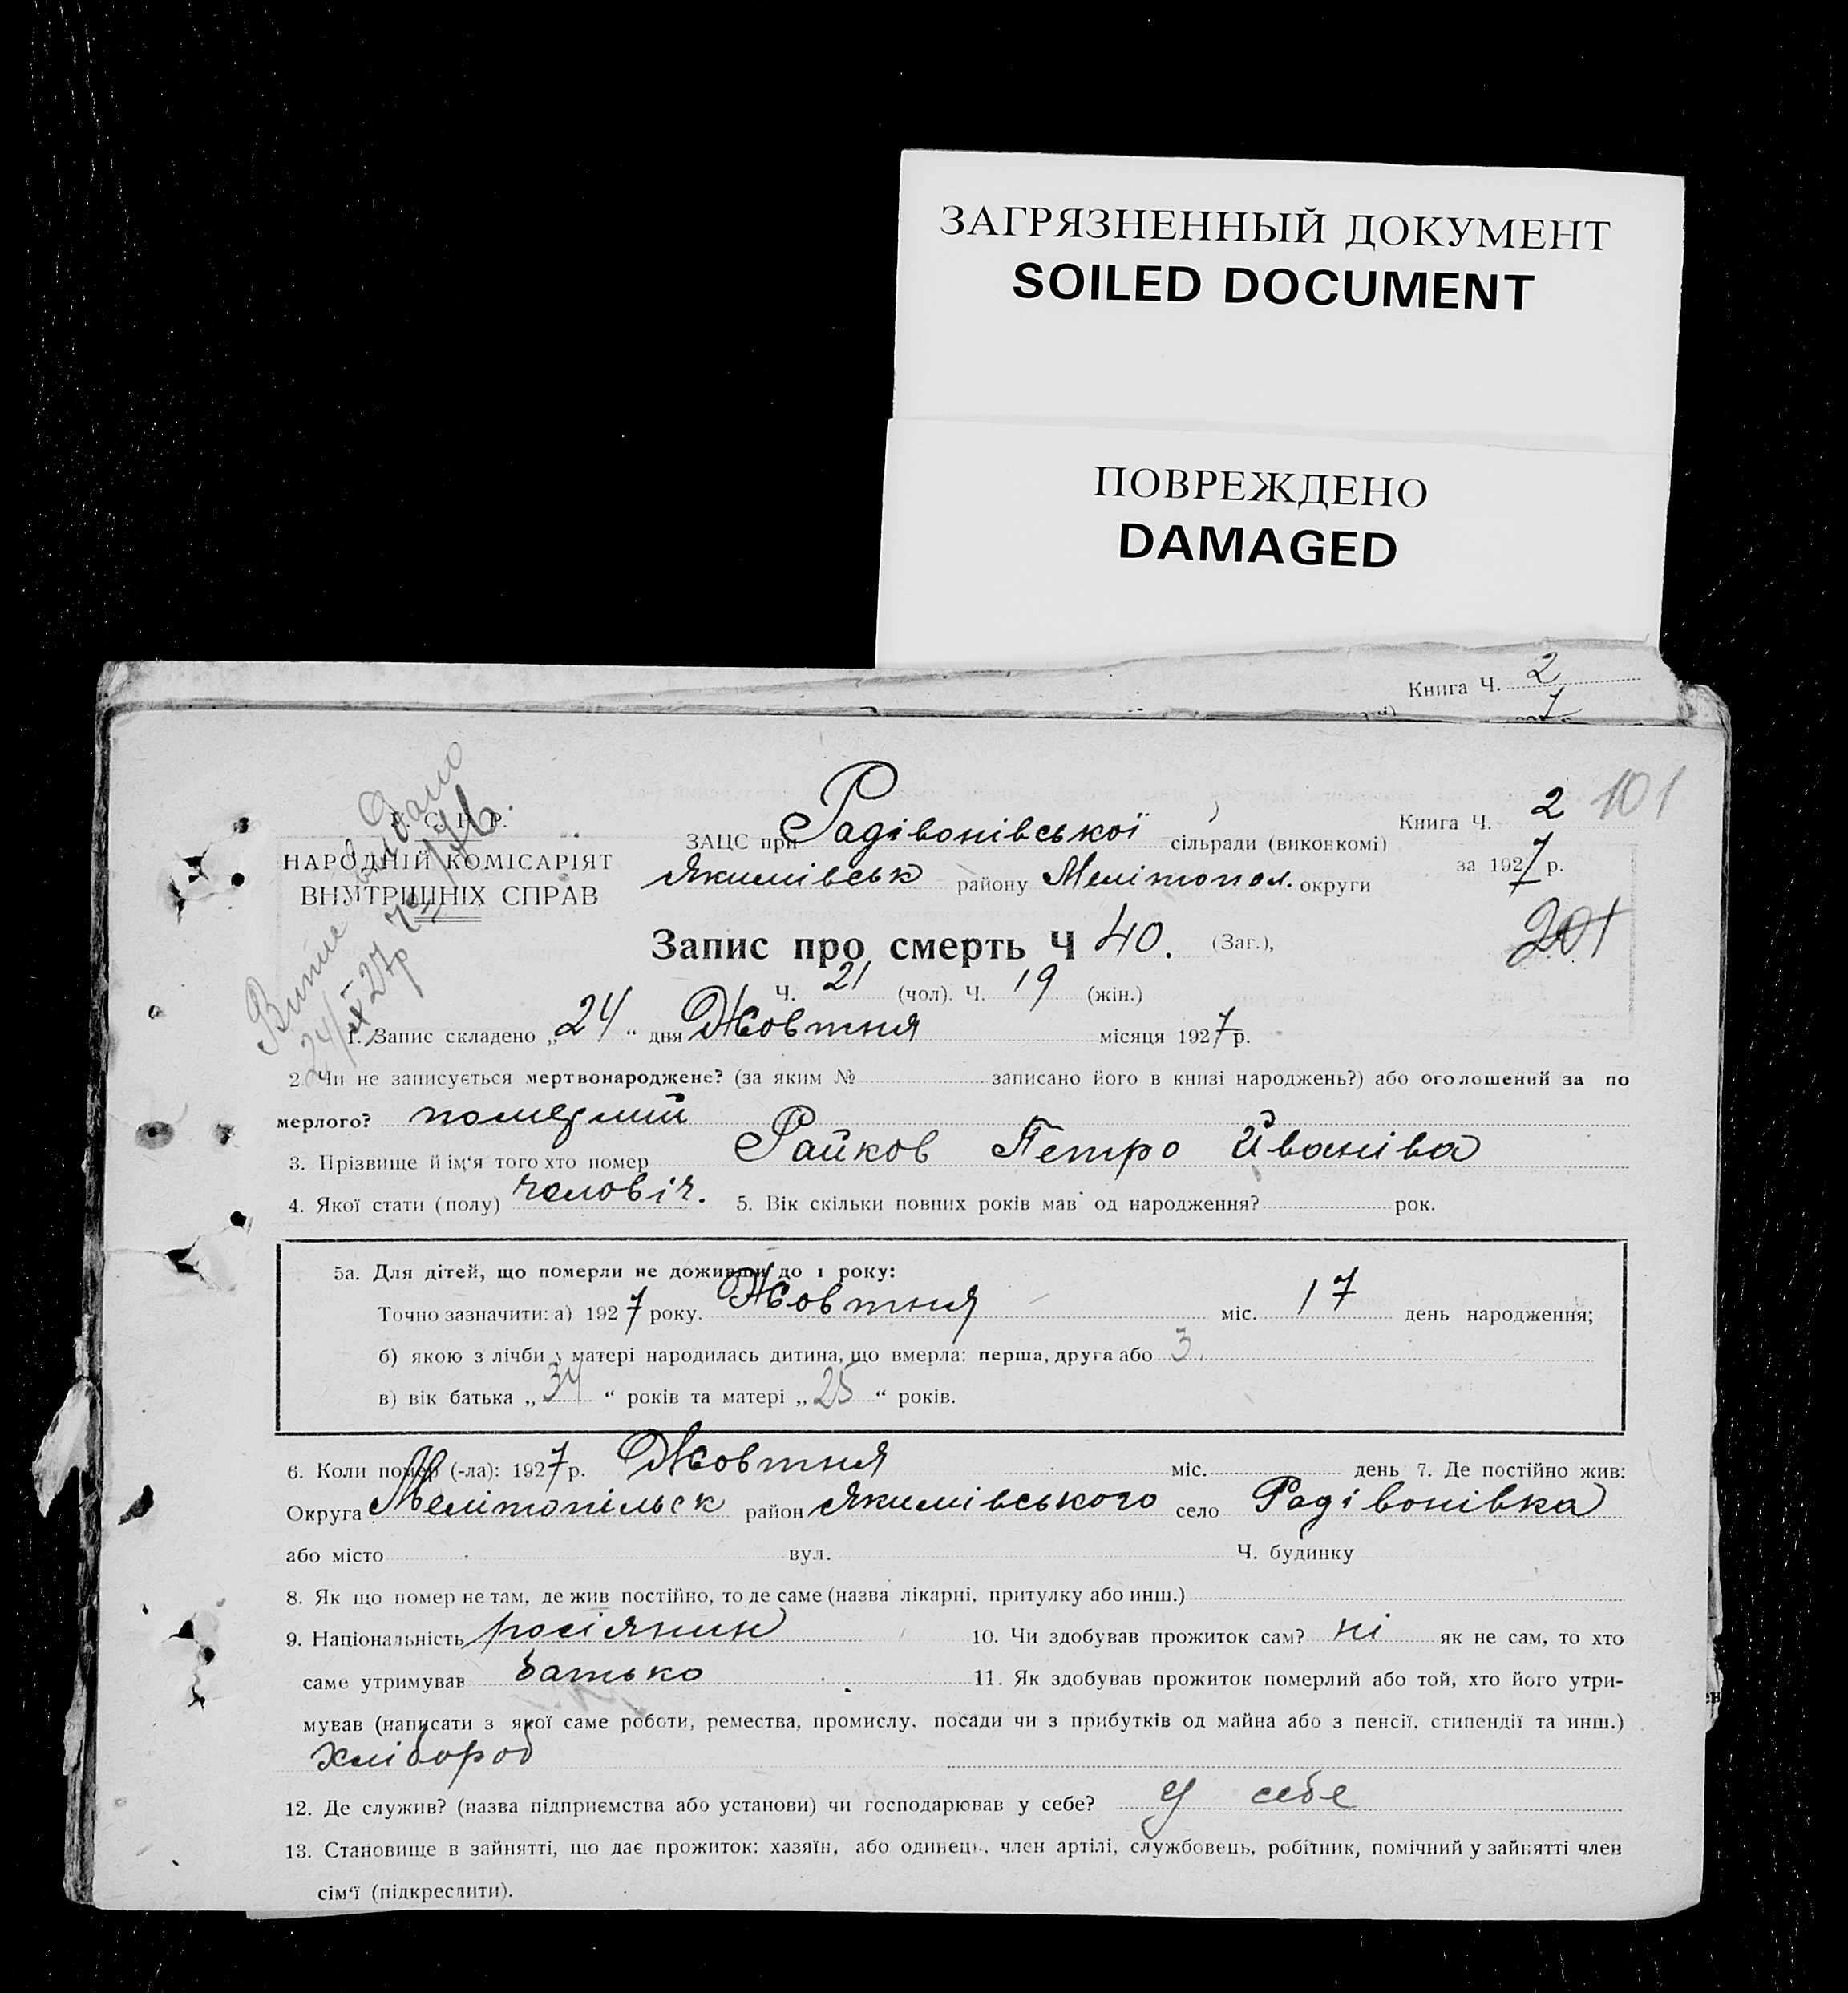 ЗАГРЯЗНЕННЫЙ ДОКУМЕНТ
SOILED DOCUMENT
ПОВРЕЖДЕНО
DAMAGED
Книга Ч. 2
7
101
У. С. Р. Р.
НАРОДНІЙ КОМІСАРІЯТ
ВНУТРІШНІХ СПРАВ
Видано
24/X 27р
ЗАЦС при Радівонівської сільради (виконкомі)
Якимівськ району Мелітопол. округи
Книга Ч. 2
за 1927 р.
201
Запис про смерть Ч 40. (Заг.),
Ч. 21 (чол). Ч. 19 (жін.)
1. Запис складено „24“ дня Жовтня місяця 1927 р.
2. Чи не записується мертвонароджене? (за яким № записано його в книзі народжень?) або оголошений за по
мерлого? померлий
3. Прізвище й ім‘я того хто помер Райков Петро Йваніва
4. Якої стати (полу) чоловіч. 5. Вік скільки повних років мав од народження? рок.
5а. Для дітей, що померли не доживши до 1 року:
Точно зазначити: а) 1927 року. Жовтня міс. 17 день народження;
б) якою з лічби у матері народилась дитина, що вмерла: перша, друга або 3
в) вік батька „34“ років та матері „25“ років.
6. Коли помер (-ла): 1927 р. Жовтня міс. день 7. Де постійно жив:
Округа Мелітопільск район Якимівського село Радівонівка
або місто вул. Ч. будинку
8. Як що помер не там, де жив постійно, то де саме (назва лікарні, притулку або инш.)
9. Національність росіянин 10. Чи здобував прожиток сам? ні як не сам, то хто
саме утримував батько 11. Як здобував прожиток померлий або той, хто його утри-
мував (написати з якої саме роботи, ремества, промислу, посади чи з прибутків од майна або з пенсії, стипендії та инш.)
хлібороб
12. Де служив? (назва підприємства або установи) чи господарював у себе? у себе
13. Становище в зайнятті, що дає прожиток: хазяїн, або одинець, член артілі, службовець, робітник, помічний у зайнятті член
сім‘ї (підкреслити).